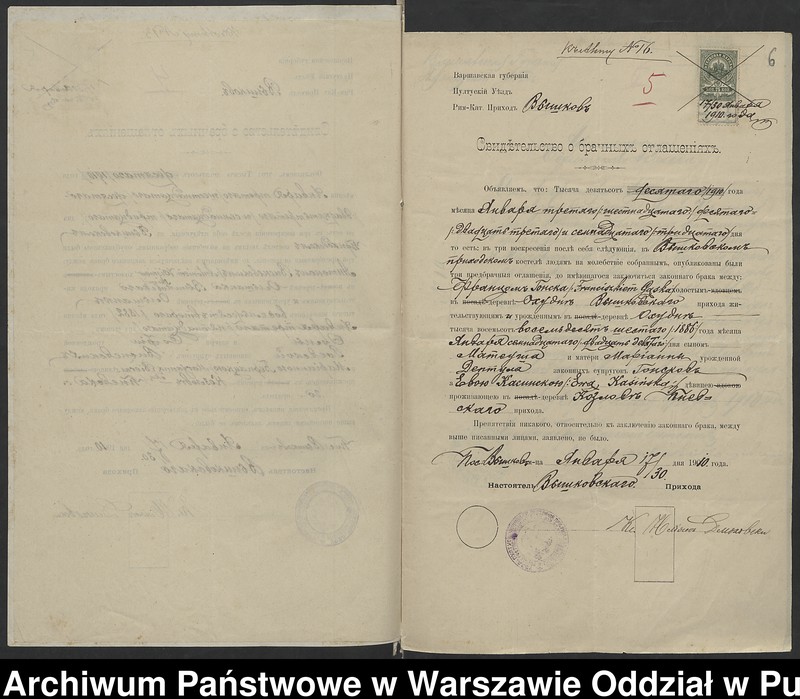 Къ акту №16.
6
5
Варшавская губернія
Пултускій Уѣздъ
Рим-Кат. Приходъ Вышковъ
17/30 Января
1910 года
Свидѣтельство о брачныхъ оглашеніяхъ.
Объявляемъ, что: Тысяча девятьсотъ десятаго /1910/ года
мѣсяца Января третяго /шестнадцатаго/ десятаго
/двадцать третяго/ и семнадцатаго /тридцатаго/ дня
то есть: въ три воскресенія послѣ себя слѣдующія, въ Вышковскомъ
приходскомъ костелѣ людямъ на молебствіе собраннымъ, опубликованы были
три предбрачныя оглашенія, до имѣющагося заключиться законнаго брака между:
Францемъ Гонска /Franciszkiem Gąska/ холостымъ вдовцемъ
въ посадѣ-деревнѣ Охудно Вышковскаго прихода жи-
тельствующимъ и урожденнымъ въ посадѣ-деревнѣ Охудно
тысяча восемьсотъ восемьдесятъ шестаго /1886/ года мѣсяца
Января семнадцатаго /двадцать девятаго/ дня сыномъ
Матеуша и матери Маріанны урожденной
Дертула законныхъ супруговъ Гонсковъ
а Евою Касинскою /Ewą Kasińską/ дѣвицею вдовою
проживающею въ посадѣ-деревнѣ Козлово
скаго прихода.
Препятствія никакого, относительно къ заключенію законнаго брака, между
выше писанными лицами, заявлено, не было.
Пос. Вышковъ-на Января 17/30 дня 1910 года.
Настоятель Вышковскаго Прихода
Кс.
Archiwum Państwowe w Warszawie Oddział w Pu